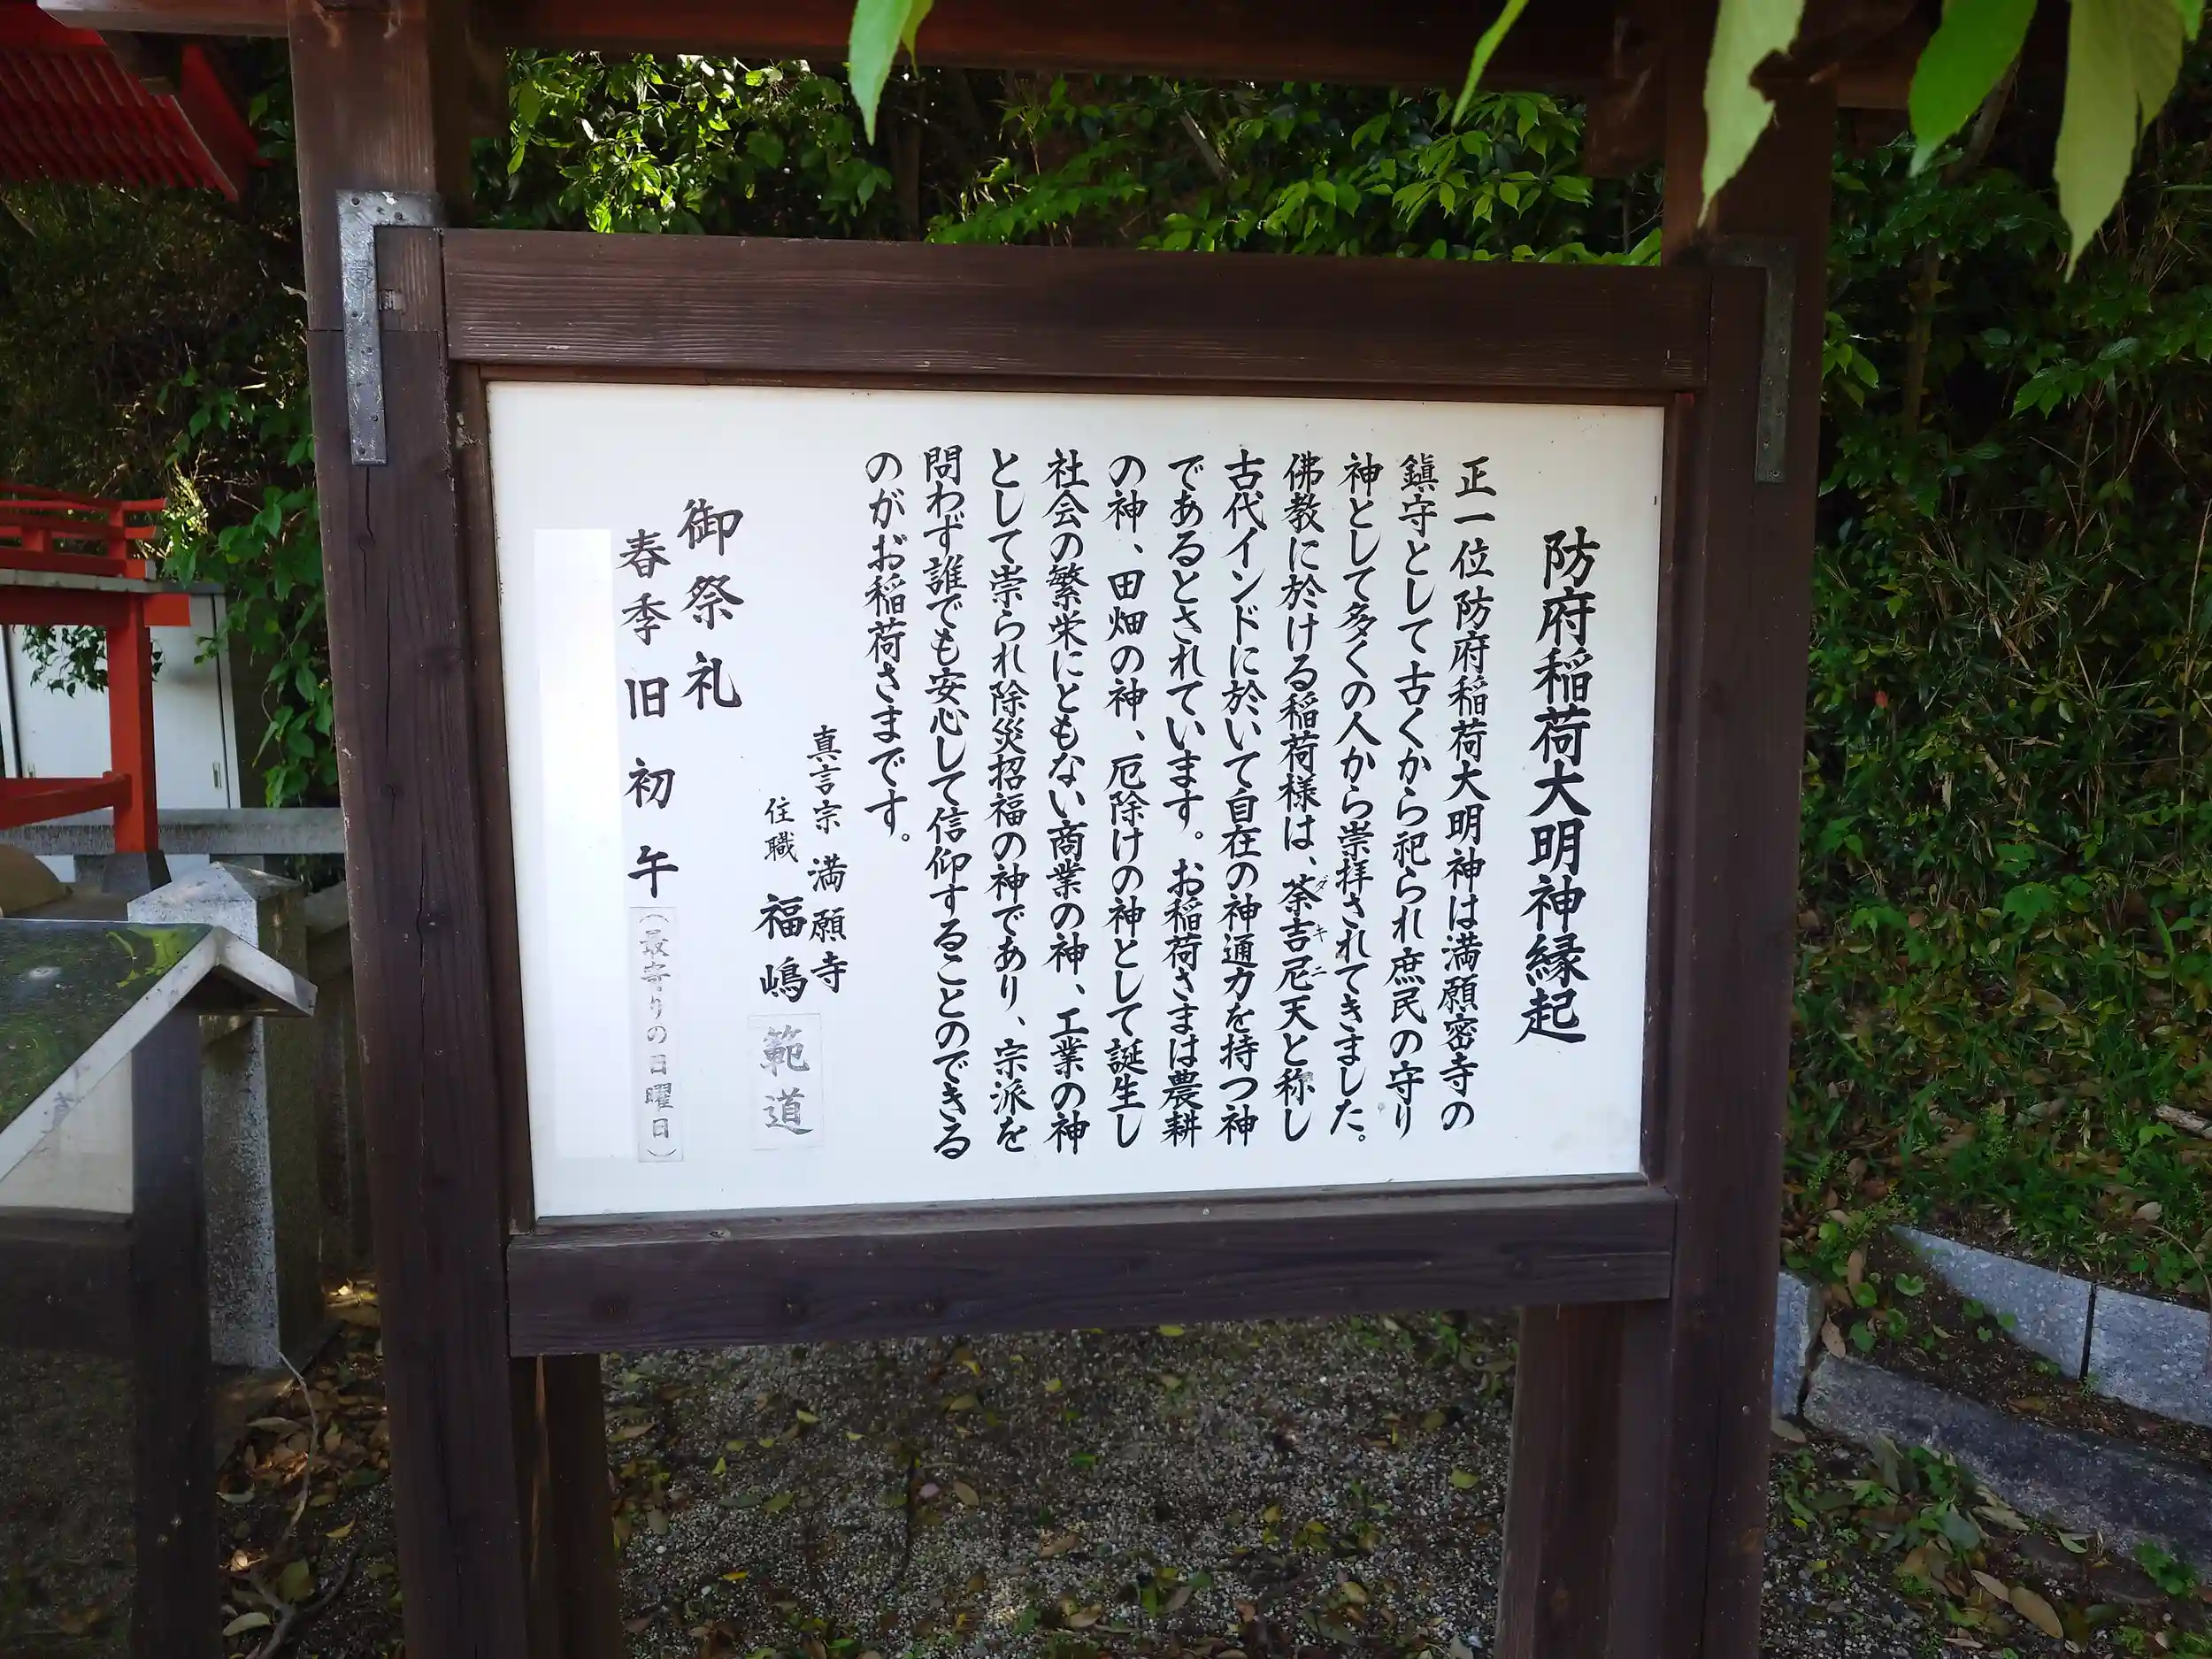 防府稲荷大明神縁起
正一位防府稲荷大明神は満願密寺の
鎮守として古くから祀られ庶民の守り
神として多くの人から崇拝されてきました。
佛教に於ける稲荷様は、荼吉尼天と称し
ダキニ
古代インドに於いて自在の神通力を持つ神
であるとされています。お稲荷さまは農耕
の神、田畑の神、厄除けの神として誕生し
社会の繁栄にともない商業の神、工業の神
として崇られ除災招福の神であり、宗派を
問わず誰でも安心して信仰することのできる
のがお稲荷さまです。
真言宗 満願寺
住職 福嶋範道
御祭礼
春季旧初午(最寄りの日曜日)